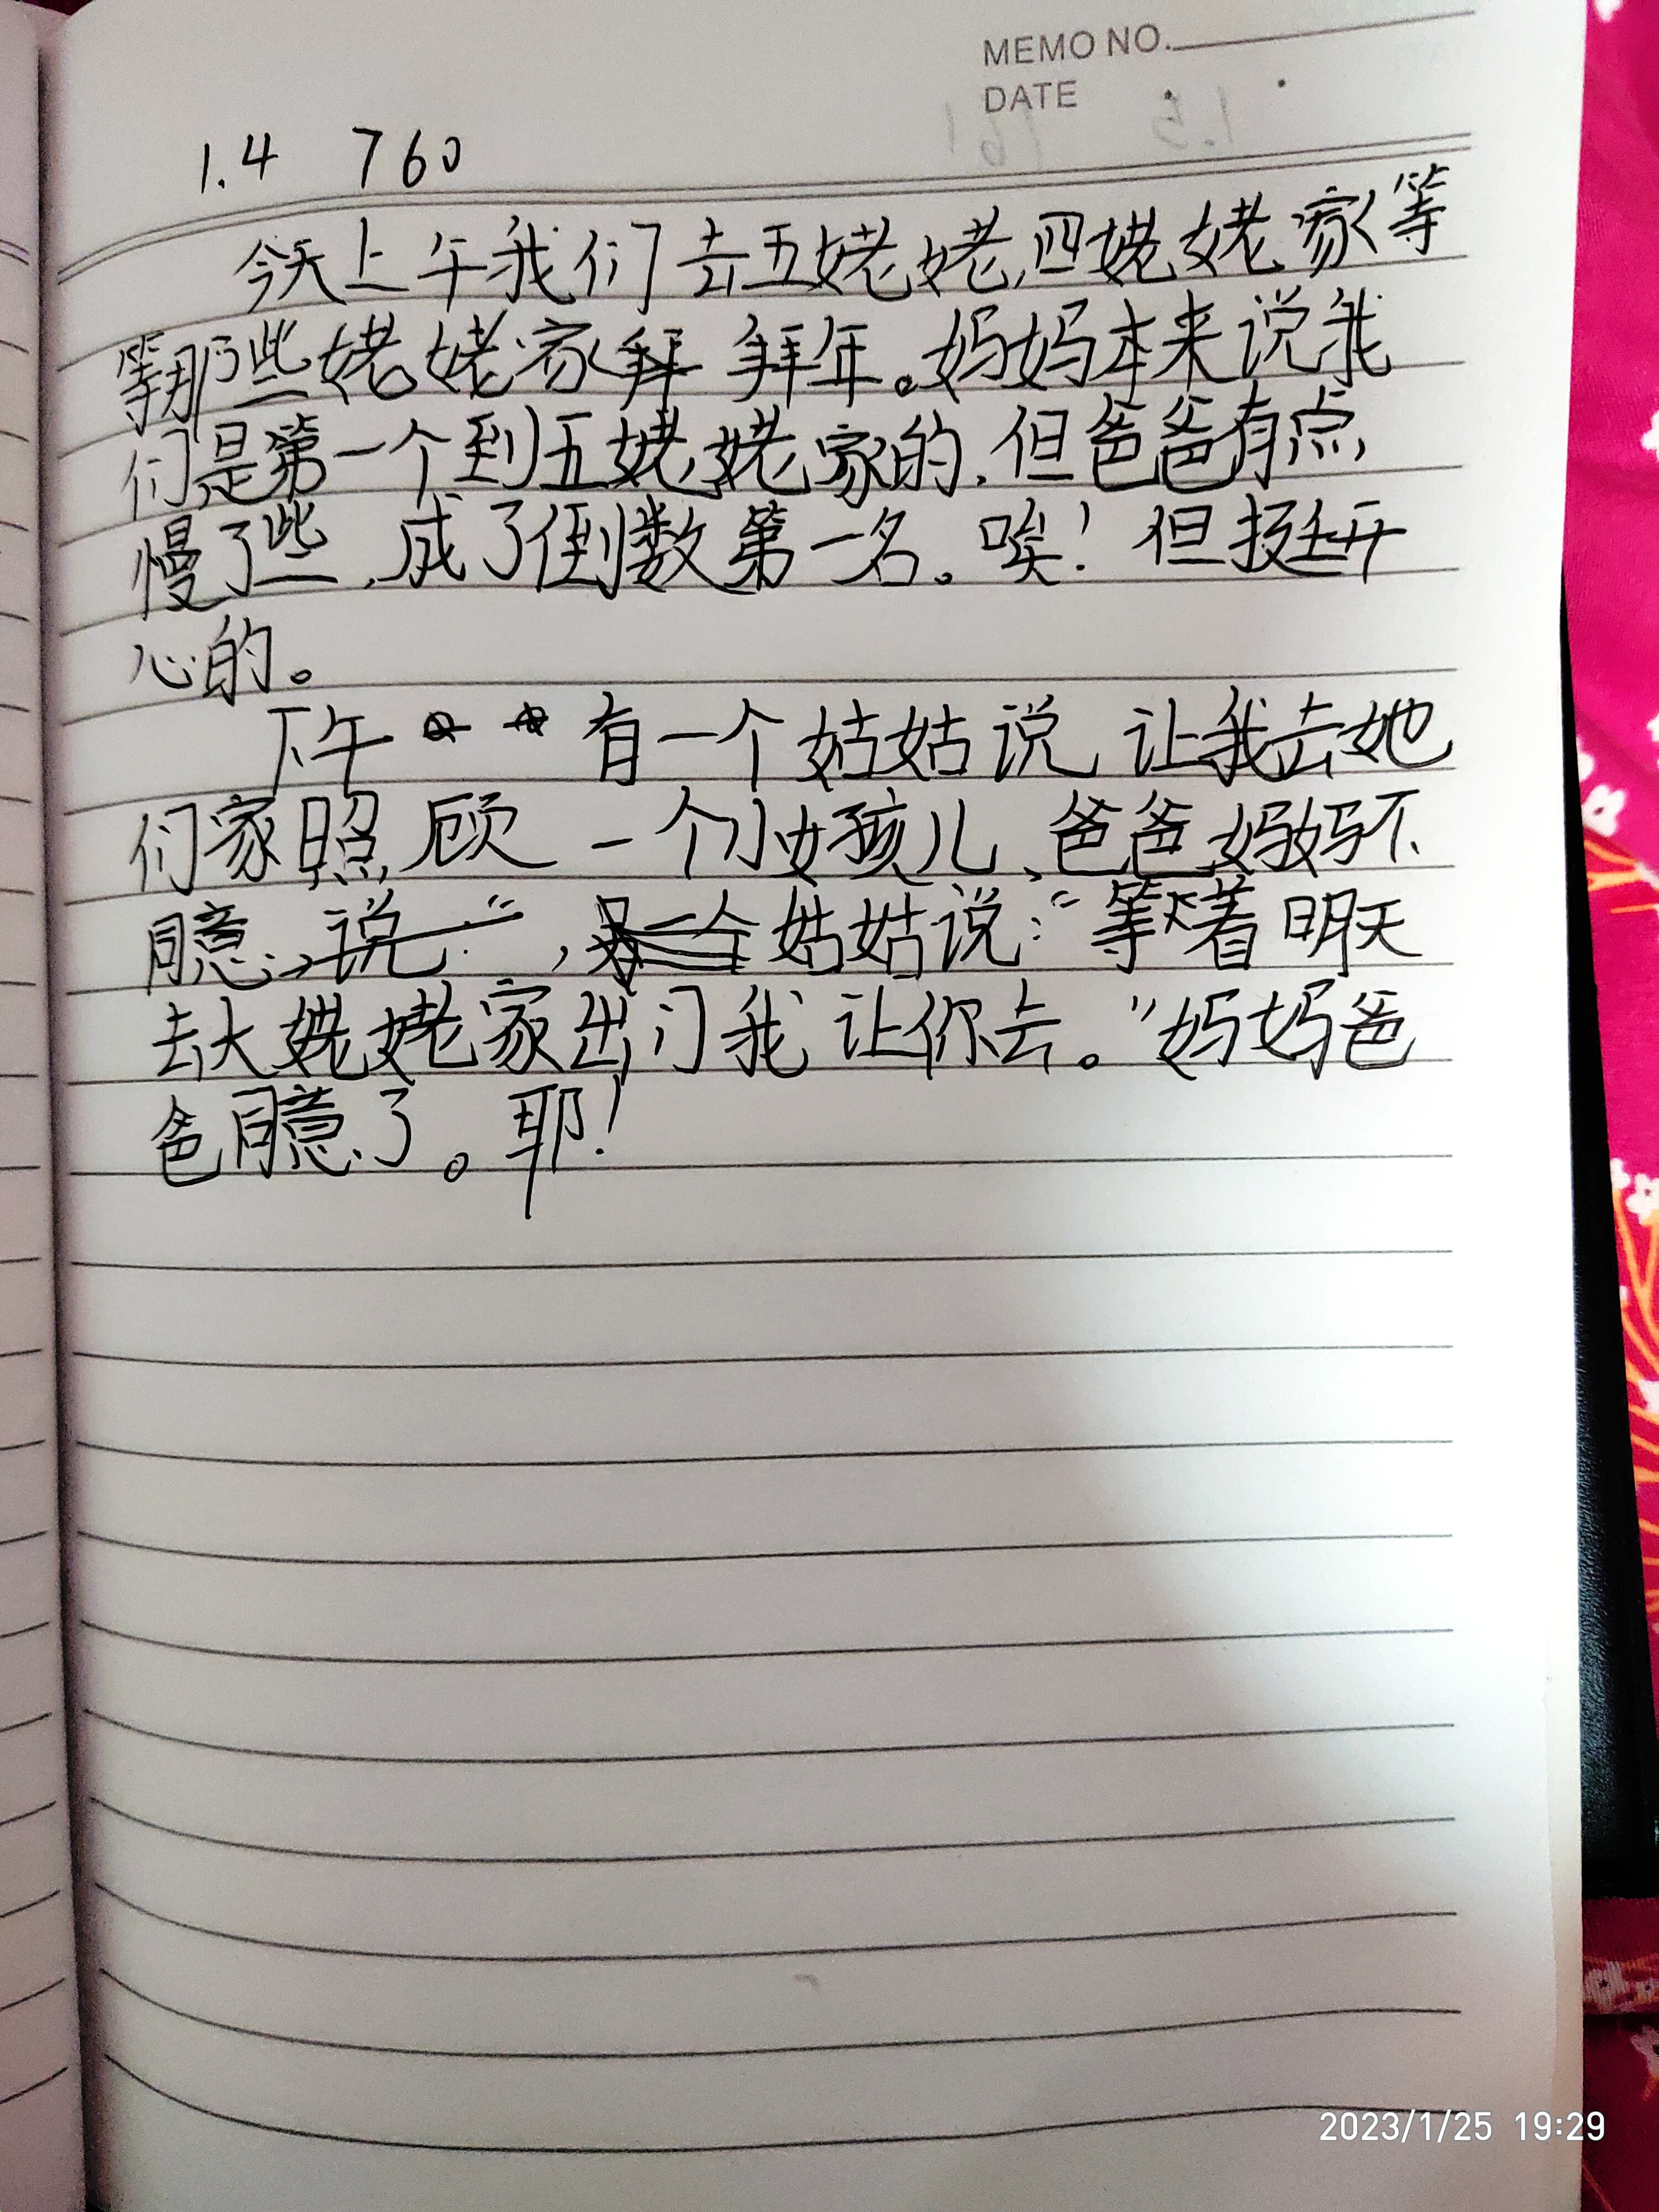 MEMO NO.
DATE
1.4 760
今天上午我们去五姥姥,四姥姥家等
等那些姥姥家拜年。妈妈本来说我
们是第一个到五姥姥家的,但爸爸有点
慢了些,成了倒数第一名。唉!但挺开
心的。
下午有一个姑姑说,让我去她
们家照顾一个小女孩儿、爸爸妈妈不
同意,姑姑说:“等着明天
去大姥姥家出门我让你去。”妈妈爸
爸同意了。耶!
2023/1/25 19:29